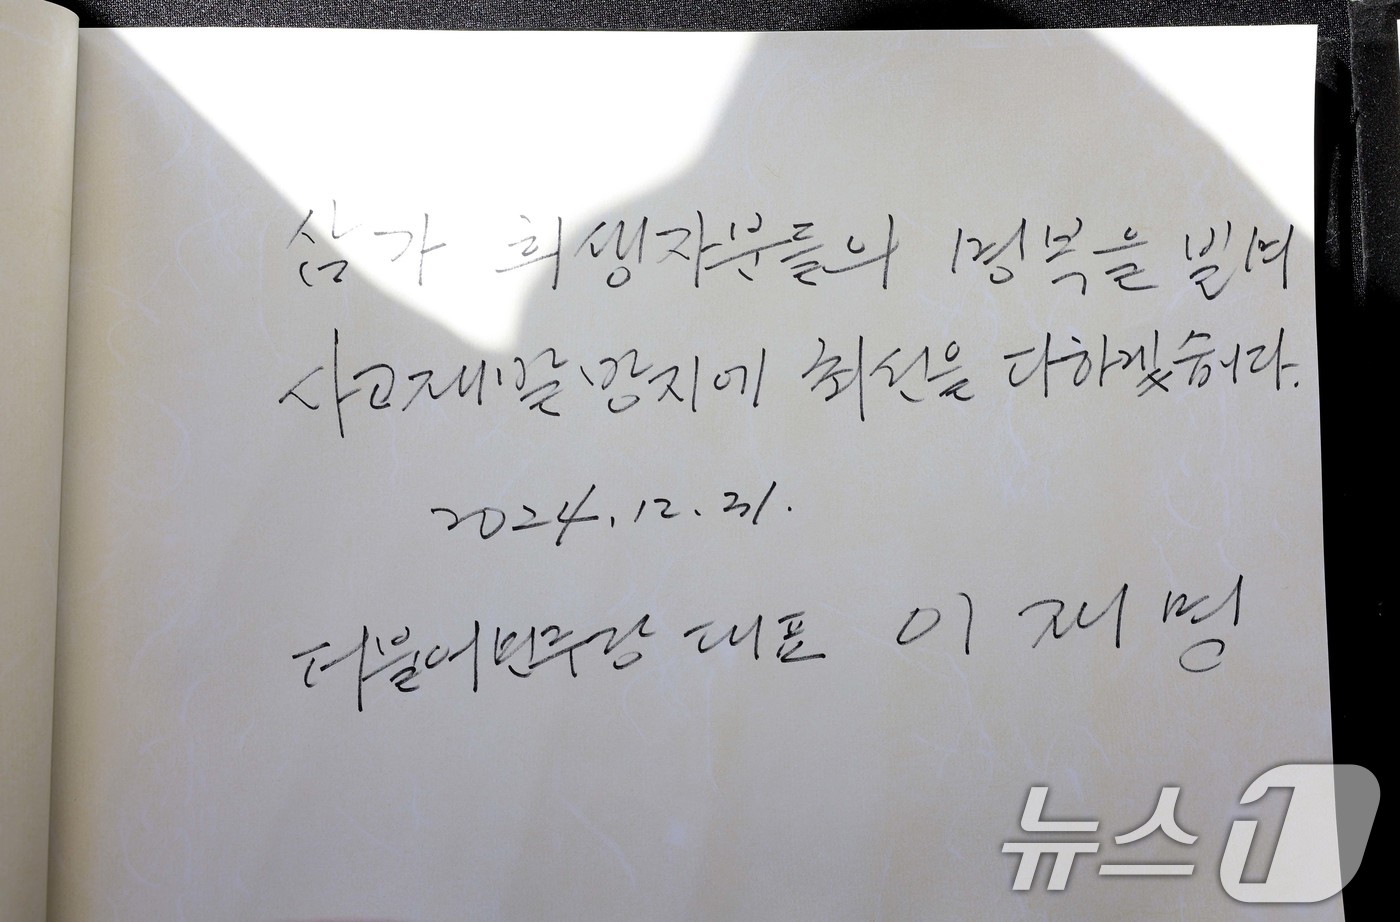 삼가 희생자분들의 명복을 빌며
사고재발방지에 최선을 다하겠습니다.
2024. 12. 31.
더불어민주당 대표 이재명
뉴스1